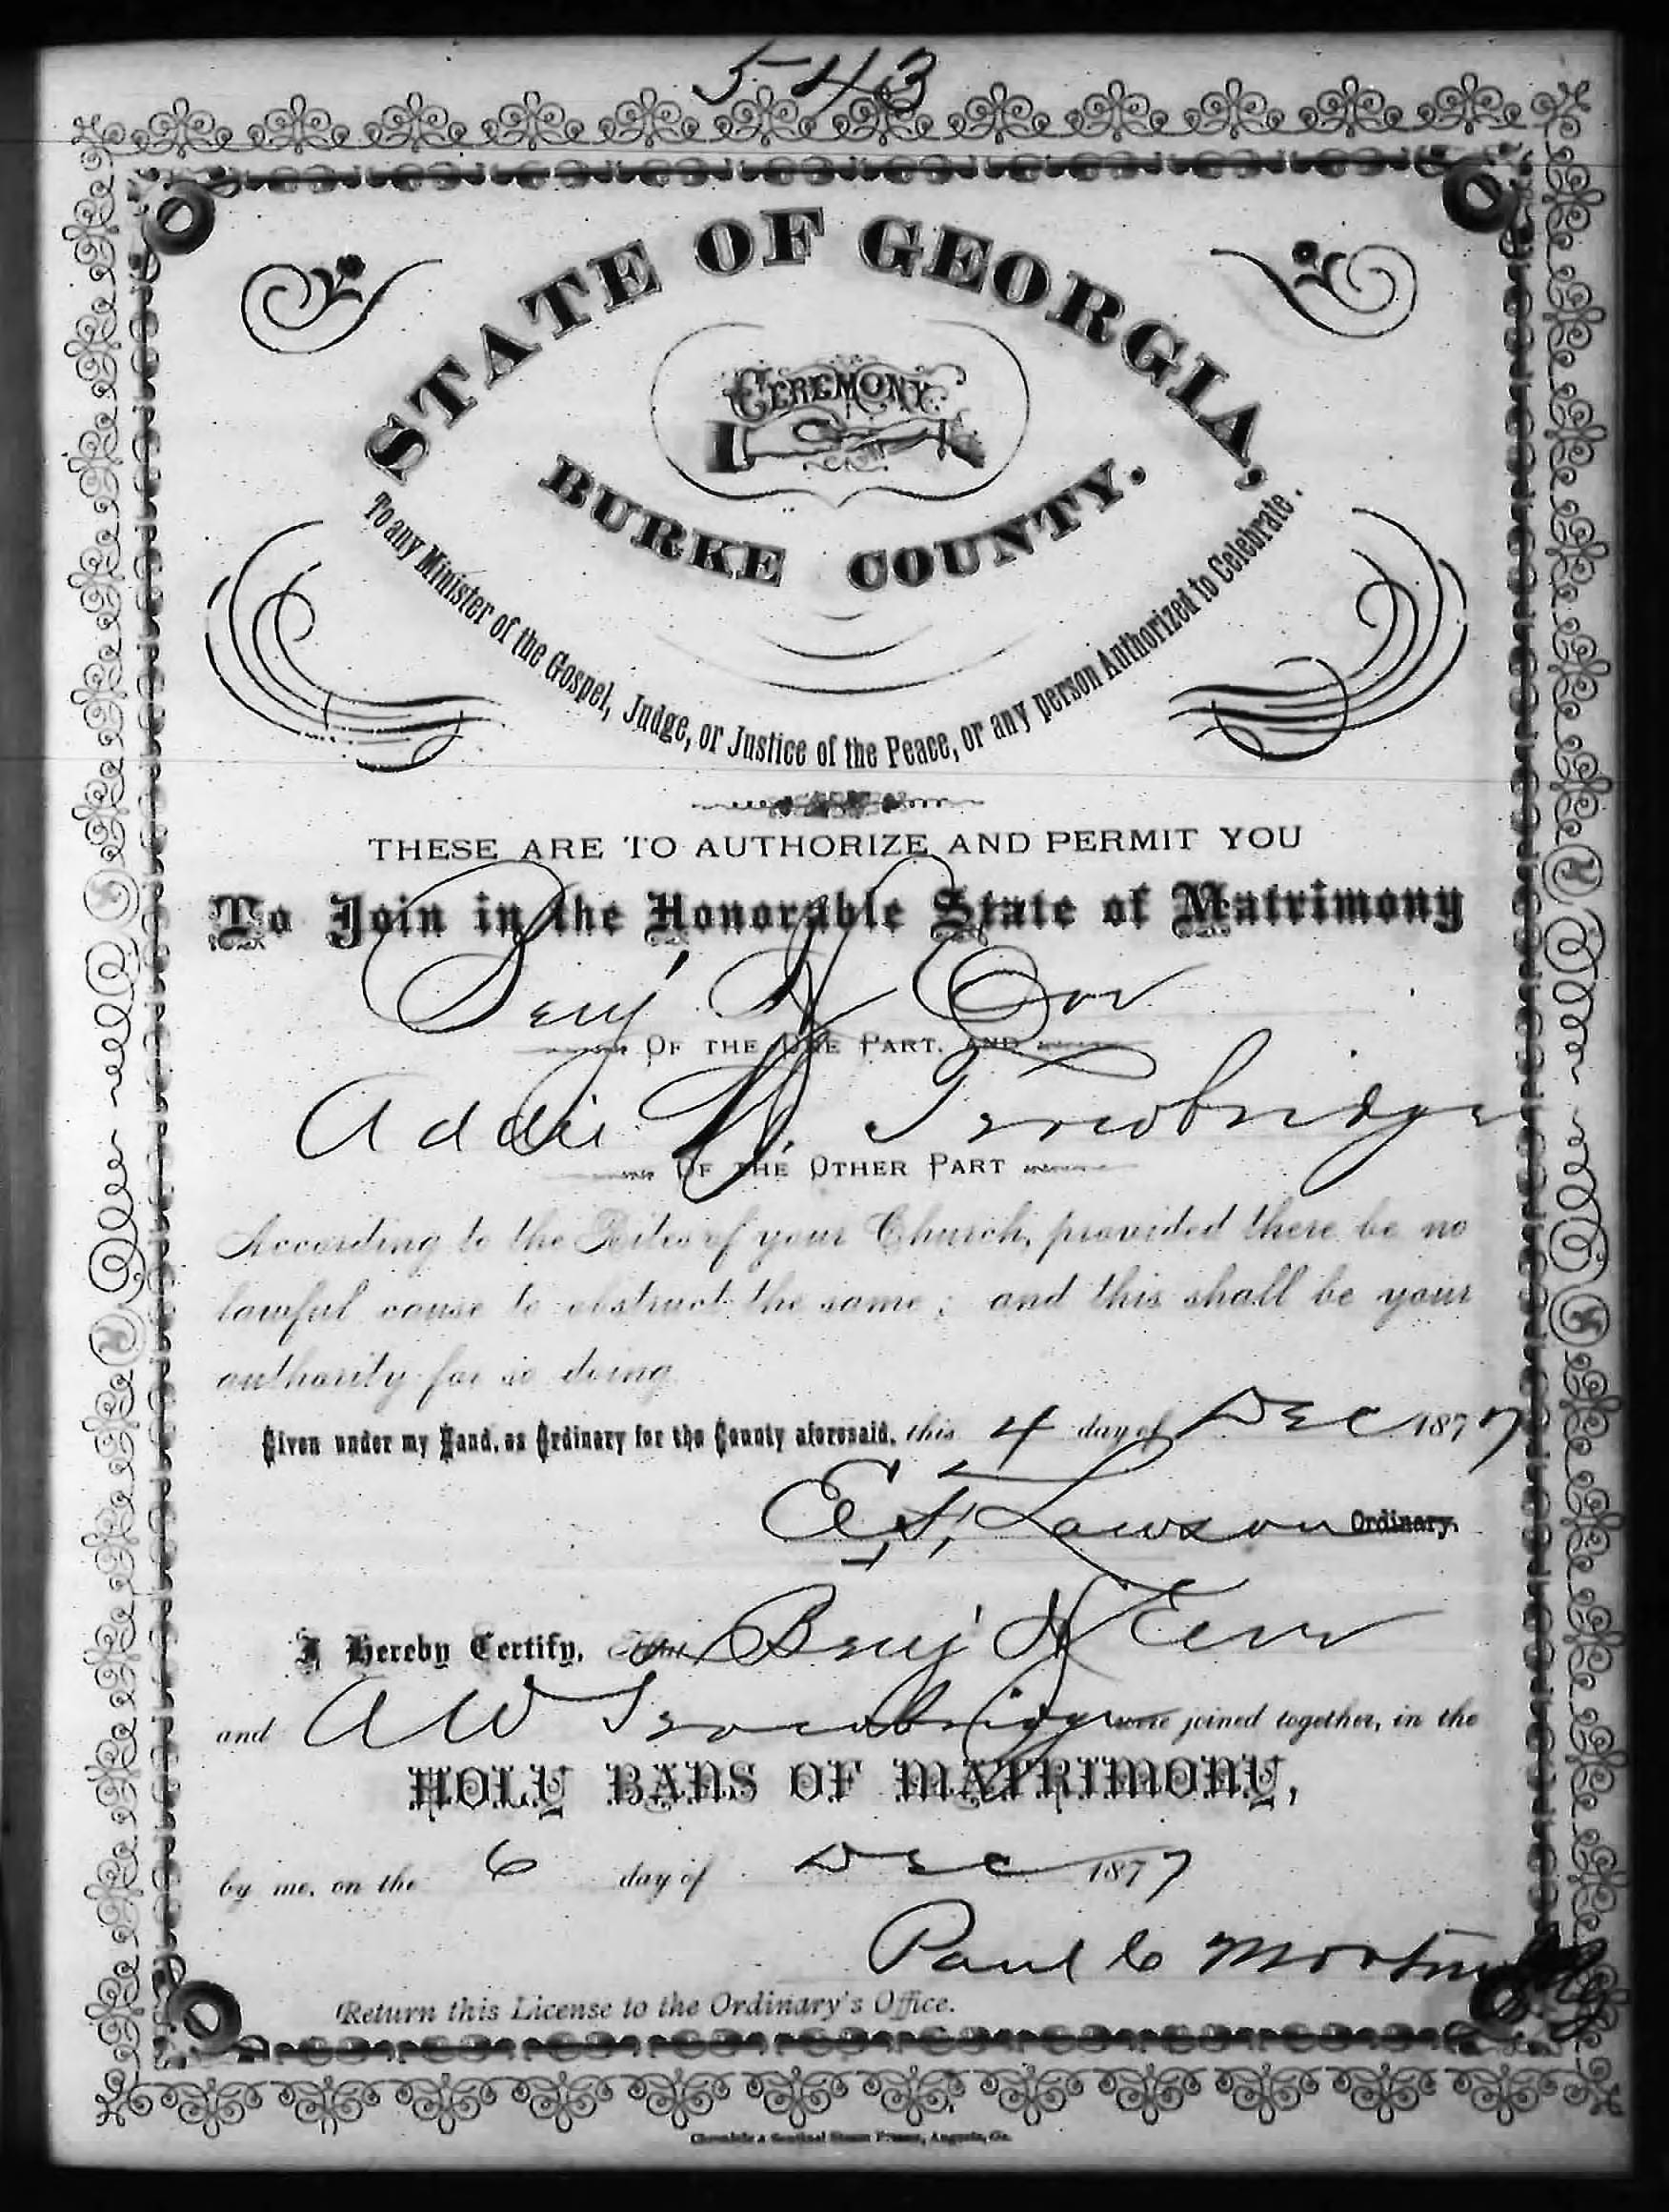 543
STATE OF GEORGIA,
CEREMONY
BURKE COUNTY.
To any Minister of the Gospel, Judge, or Justice of the Peace, or any person Authorized to Celebrate.
THESE ARE TO AUTHORIZE AND PERMIT YOU
To Join in the Honorable State of Matrimony
Benj' H
OF THE ONE PART, AND
Addie W. Trowbridge
OF THE OTHER PART
According to the Rites of your Church, provided there be no
lawful cause to obstruct the same; and this shall be your
authority for so doing.
Given under my Hand, as Ordinary for the County aforesaid, this 4 day of Dec 1877
E, F, Lawson Ordinary.
I Hereby Certify, That Benj' H
and A W Trowbridge were joined together, in the
HOLY BANS OF MATRIMONY,
by me, on the 6 day of Dec 1877
Paul C
Return this License to the Ordinary's Office.
Chronicle & Sentinel Steam Presses, Augusta, Ga.